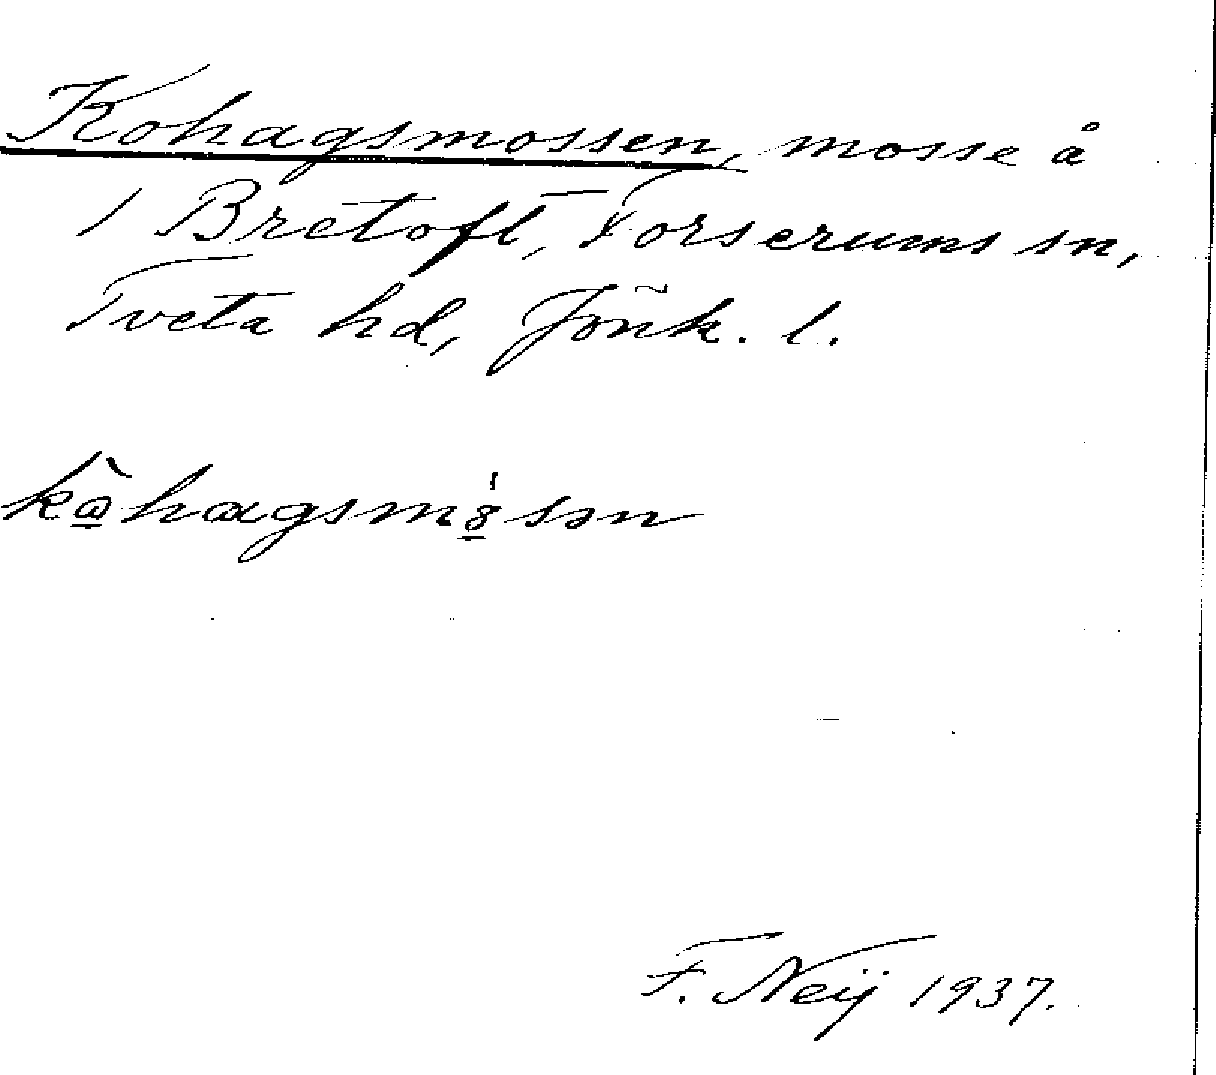 Kohagsmossen, mosse å
1 Bretoft, Forserums sn,
Tveta hd, Jönk. l.
F. Neij 1937.